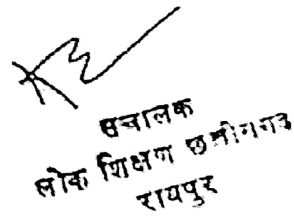 संचालक
लोक शिक्षण छत्तीसगढ़
रायपुर